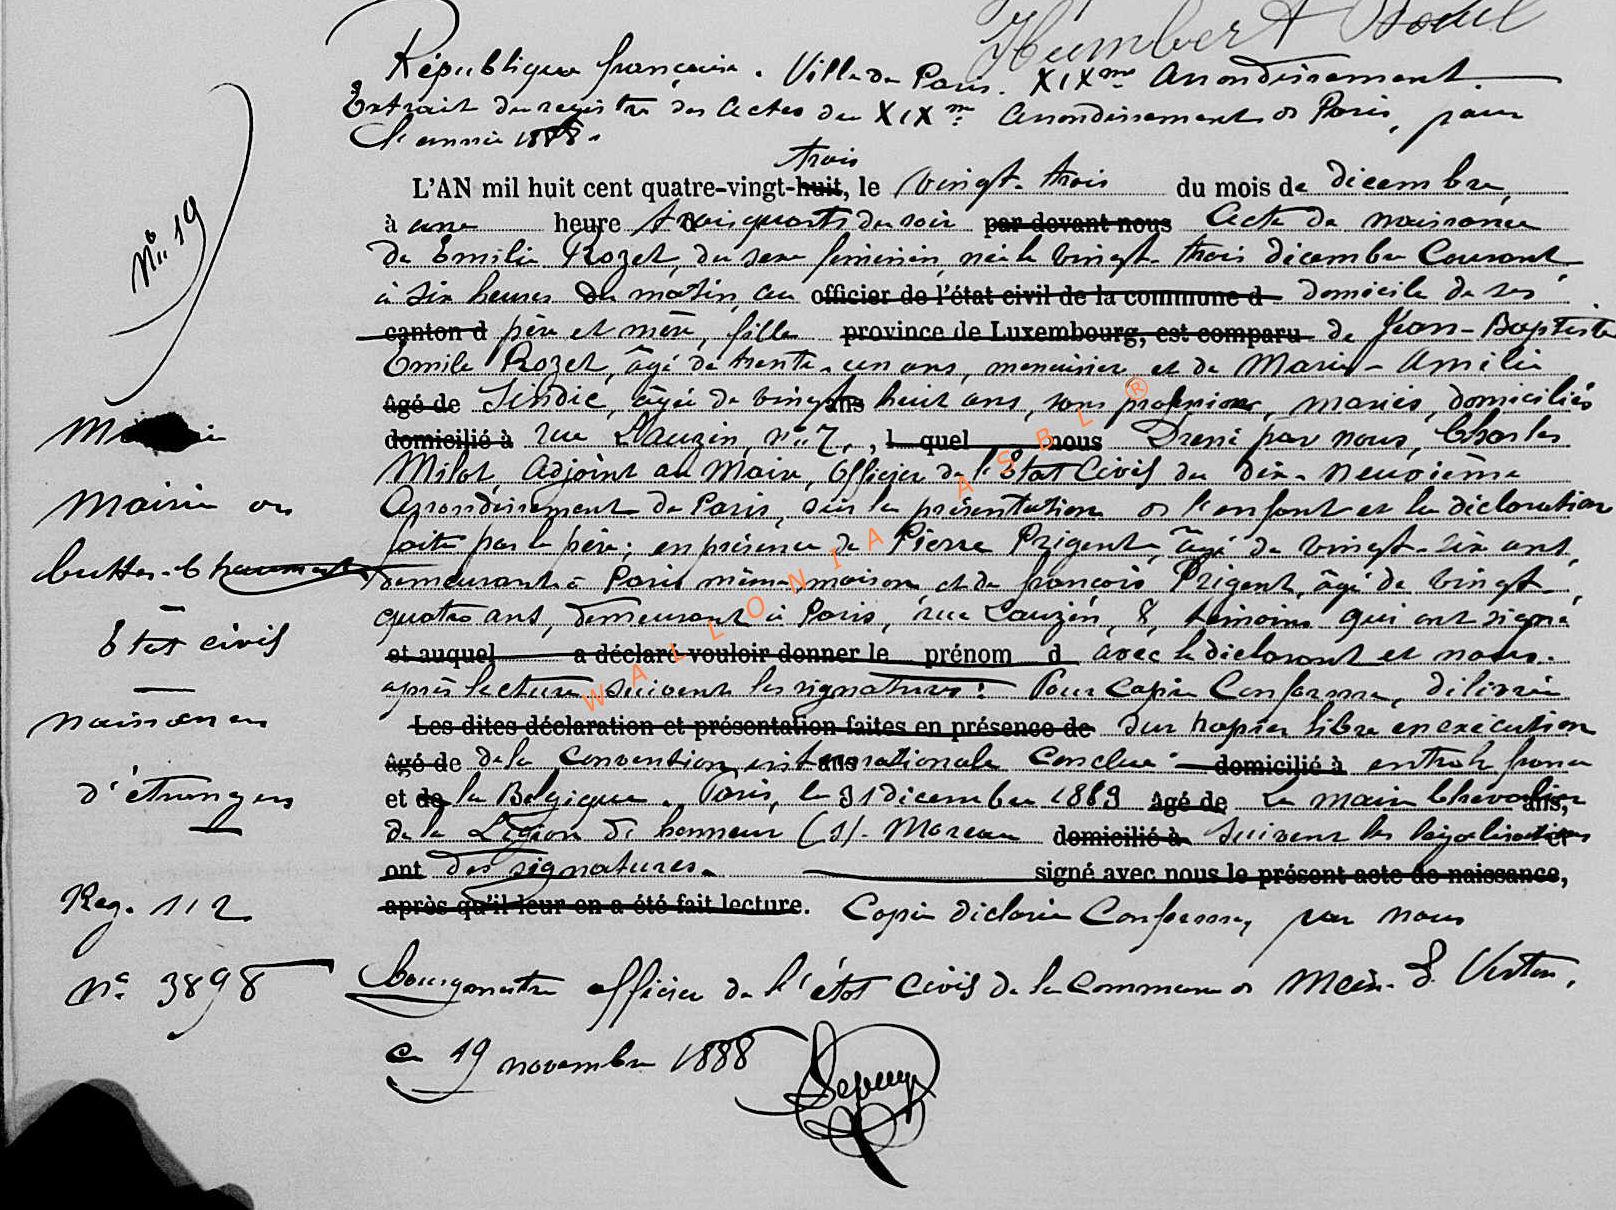 Humbert
République française. Ville de Paris. XIXme Arrondissement.
Extrait du registre des Actes du XIXme Arrondissement de Paris, pour
l'année 1888.
trois
L'AN mil huit cent quatre-vingt-huit, le vingt-trois du mois de décembre,
à une heure trois quarts du soir par devant nous Acte de naissance
de Emilie Rozet, du sexe féminin, née le vingt-trois décembre Courant,
à six heures du matin, au officier de l'état civil de la commune d domicile de ses
canton d père et mère, fille province de Luxembourg, est comparu de Jean-Baptiste
Emile Rozet, âgé de trente-un ans, menuisier et de Marie-Amélie
âgé de Sindic, âgée de vingt ans huit ans, sans profession, mariés, domiciliés
domicilié à rue Lauzin, n° 7, , l quel nous Dressé par nous, Charles
Milot, Adjoint au Maire, Officier de l'Etat Civil du dix-neuvième
Arrondissement de Paris, sur la présentation de l'enfant et la déclaration
faite par le père; en présence de Pierre Prigent, âgé de vingt-six ans,
demeurant à Paris même maison et de françois Prigent, âgé de vingt-
quatre ans, demeurant à Paris, rue Lauzin, 8, témoins qui ont signé
et auquel a déclaré vouloir donner le prénom d avec le déclarant et nous.
après lecture. Suivent les signatures: Pour Copie Conforme, délivrée
Les dites déclaration et présentation faites en présence de sur papier libre en exécution
âgé de de la Convention internationale ans Conclue domicilié à entre la france
et de la Belgique. Paris, le 31 décembre 1883 âgé de Le maire Chevalier ans,
de la Légion d'honneur (s). Moreau domicilié à Suivent les légalisations et
ont des signatures. signé avec nous le présent acte de naissance,
après qu'il leur en a été fait lecture. Copie déclarée Conforme, par nous
Bourgmestre officier de l'état Civil de la Commune de Meix-d. Virton,
ce 19 novembre 1888
N° 19
Mairie de
buttes-Chaumont
Etat civil
naissances
d'étrangers
Reg. 112
N° 3898
WALLONIA ASBL ®